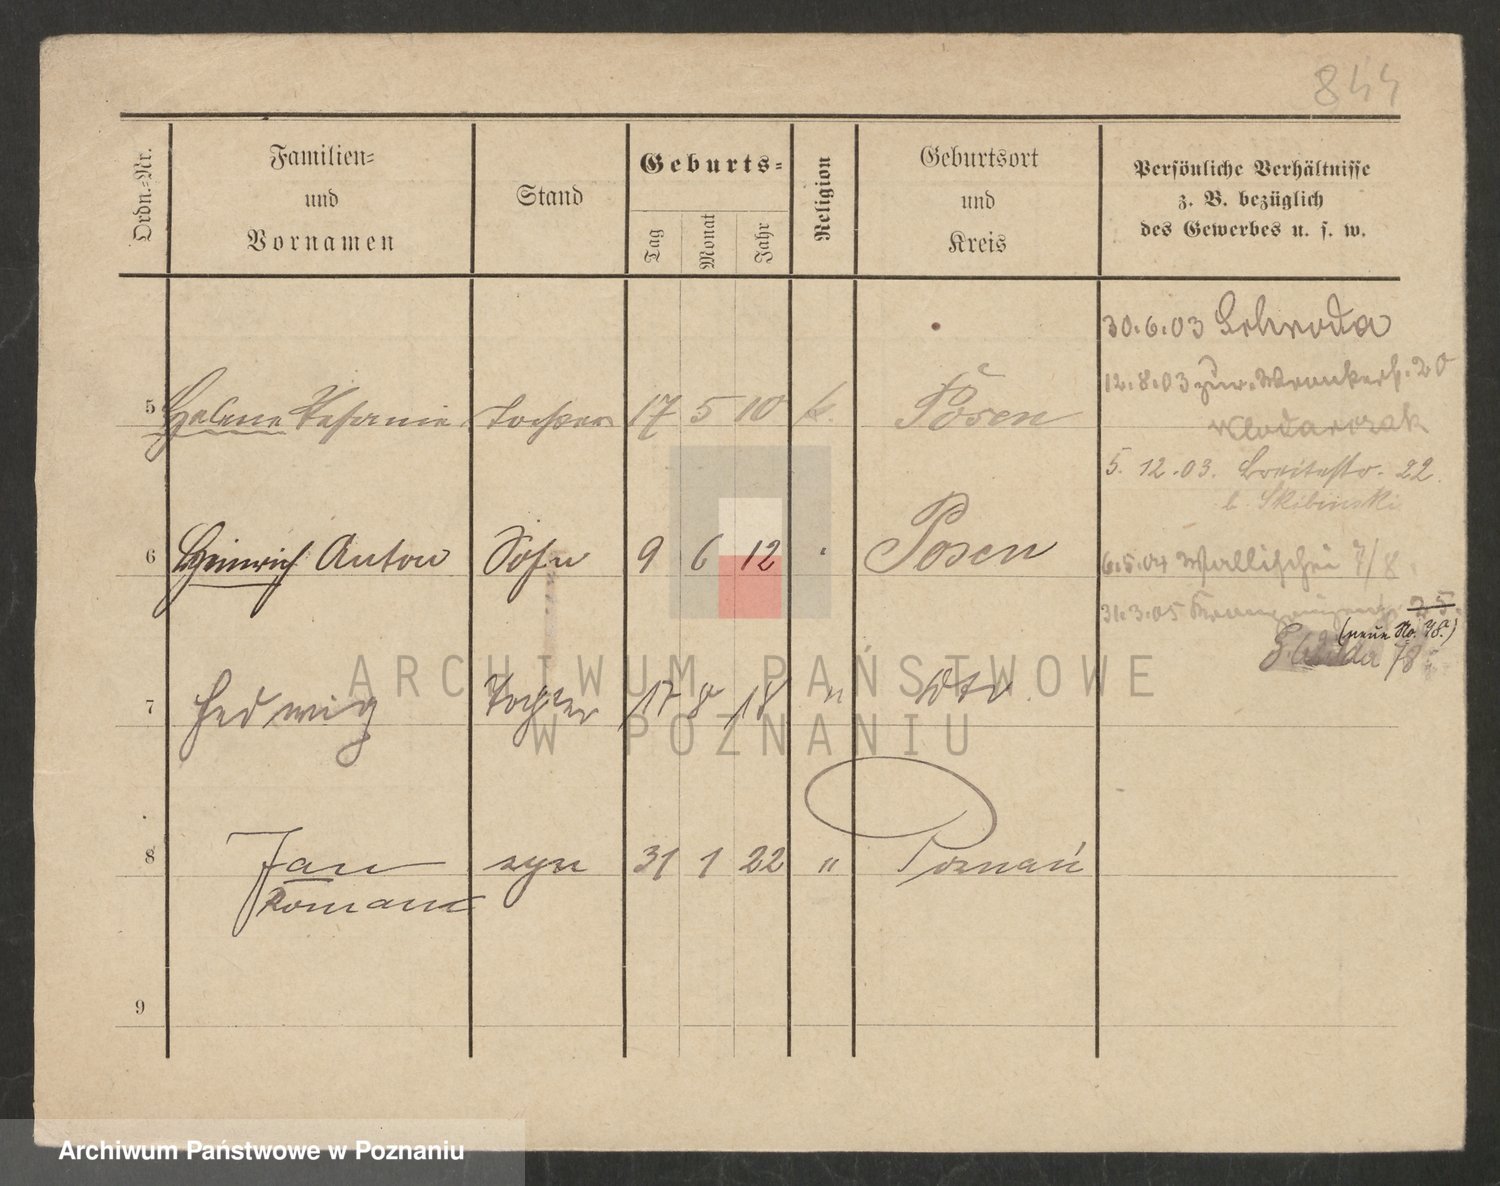 844
Ordn.-Nr.
Familien-
und
Vornamen
Stand
Geburts-
Tag
Monat
Jahr
Religion
Geburtsort
und
Kreis
Persönliche Verhältnisse
z. B. bezüglich
des Gewerbes u. s. w.
30.6.03 Schroda
12.8.03 zur. Wronkerstr. 20
Wlodarczak
5 Helene Stefanie Tochter 17 5 10 k. Posen
5. 12.03. Breitestr. 22.
b. Skibinski
6 Heinrich Anton Sohn 9 6 12 " Posen
6.5.04 Wallischei 7/8
31.3.05 25.
(neue No. 78.)
78
7 Hedwig Tochter 17 8 18 " dto
8 Jan syn 31 1 22 " Poznań
Roman
9
ARCHIWUM PAŃSTWOWE
W POZNANIU
Archiwum Państwowe w Poznaniu